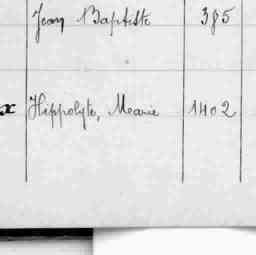 Jean Baptiste 385
x Hippolyte, Marie 1402